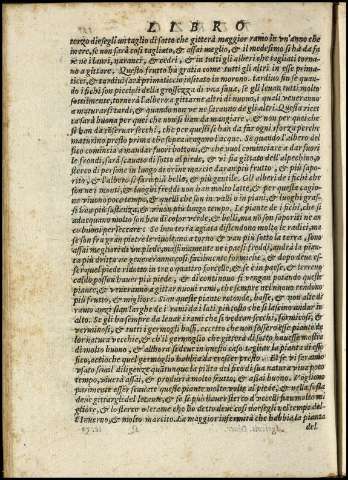 LIBRO
terzo diesegli un taglio di sotto che gitterà maggior ramo in un'anno che
in tre, se non sarà così tagliato, & assai meglio, & il medesimo si hà da fa
re nè i lauri, naranci, & cedri, & in tutti gli alberi che tagliati torna-
no a gittare. Questo frutto hà gratia come tutti gli altri in esse prima-
ticci, & tardiui sarà primaticcio insitato in moreno. tardiuo sia se quan-
do i fichi son piccioli della grossezza di una fiua, se gli leuan tutti molto
sottilmente, tornerà l'albero a gittarne altri di nuouo, i quali veneranno
a maturarsi tardi, & quando non ve ne saranno de gli altri. Questa ricet
ta sarà buona per quei che nuoui si han da mangiare, & non per quei che
si han da riserbar secchi, che per questi si han da far ogni sforzo perche
maturino presto prima che sopragiungan l'acque. Se quando l'albero del
fico comincia a mandar fuori bottoni, & che vuol cominciare a dar fuori
le frondi, sarà scauato di sotto al piede, & vi sia gittato dell'alpechino, o
sterco di persone in luogo de orine marcie daran più frutto, & più sapo-
rito, & l'albero si farà più bello, & più gentile. Gli alberi de i fichi che
son ne i monti, & luoghi freddi non han molto latte, & per questa cagio-
ne viuono poco tempo, & quelli che son in valli o in piani, & luoghi gras-
si han più sustentia, & viuon più lungo tempo. Le piante de i fichi, che si
adacquano molto son ben di color verde, & belli, ma nō son saporiti nè an
cu buoni per seccare. Se han terra agiata distendon molto le radici, ma
se son fra gran pietre ò riuolti, ano a torno & van più sotto la terra, sono
assai megliori in un piede, massimamente ne i paesi freddi, andrà la pian-
ta più dritta ne generaranno così facilmente formiche, & dopo deue es-
ser quel piede ridotto in tre o quattro forcelle, & se è in paese, & terreno
caldo possen hauer più piede, & di continouo si vengan potando queste
piante, & veneranno a gittar nuoui rami, che sempre nel nuouo rendono
più frutto, & migliore. Sian queste piante rotonde, basse, & non alte di
ramo anzi sian larghe de i rami da i lati più tosto che si lascino andar in
alto. Se gli ha sempre da leuar i rami che si vedean secchi, formicosi, &
verminosi, & tutti i germogli bassi, eccetto che non fossero esse piante da
lor natura vecchie, & che il germoglio che gitterà di sotto hauesse mostra
di molto buono, & allhora se due in inesto così tagliar la pianta di esso
fico, acciò che quel germoglio habbia da crescer presto. Et se vi sarà ani
usato simil diligenza quantunque la pianta del fico di sua natura viua poco
tempo, viuerà assai, & produrrà molto frutto, & assai buono. Vogliono
parimente esser scauate queste piante molte volte al piede, & nella fossa
deue gittargli del letame, & se si può hauer sterco di vccelli saria molto mi
gliore, & lo sterco o letame che ho detto deue così darsegli nel tempo del-
l'inuerno, & molto marcito. La maggior infermità che habbia la pianta
del